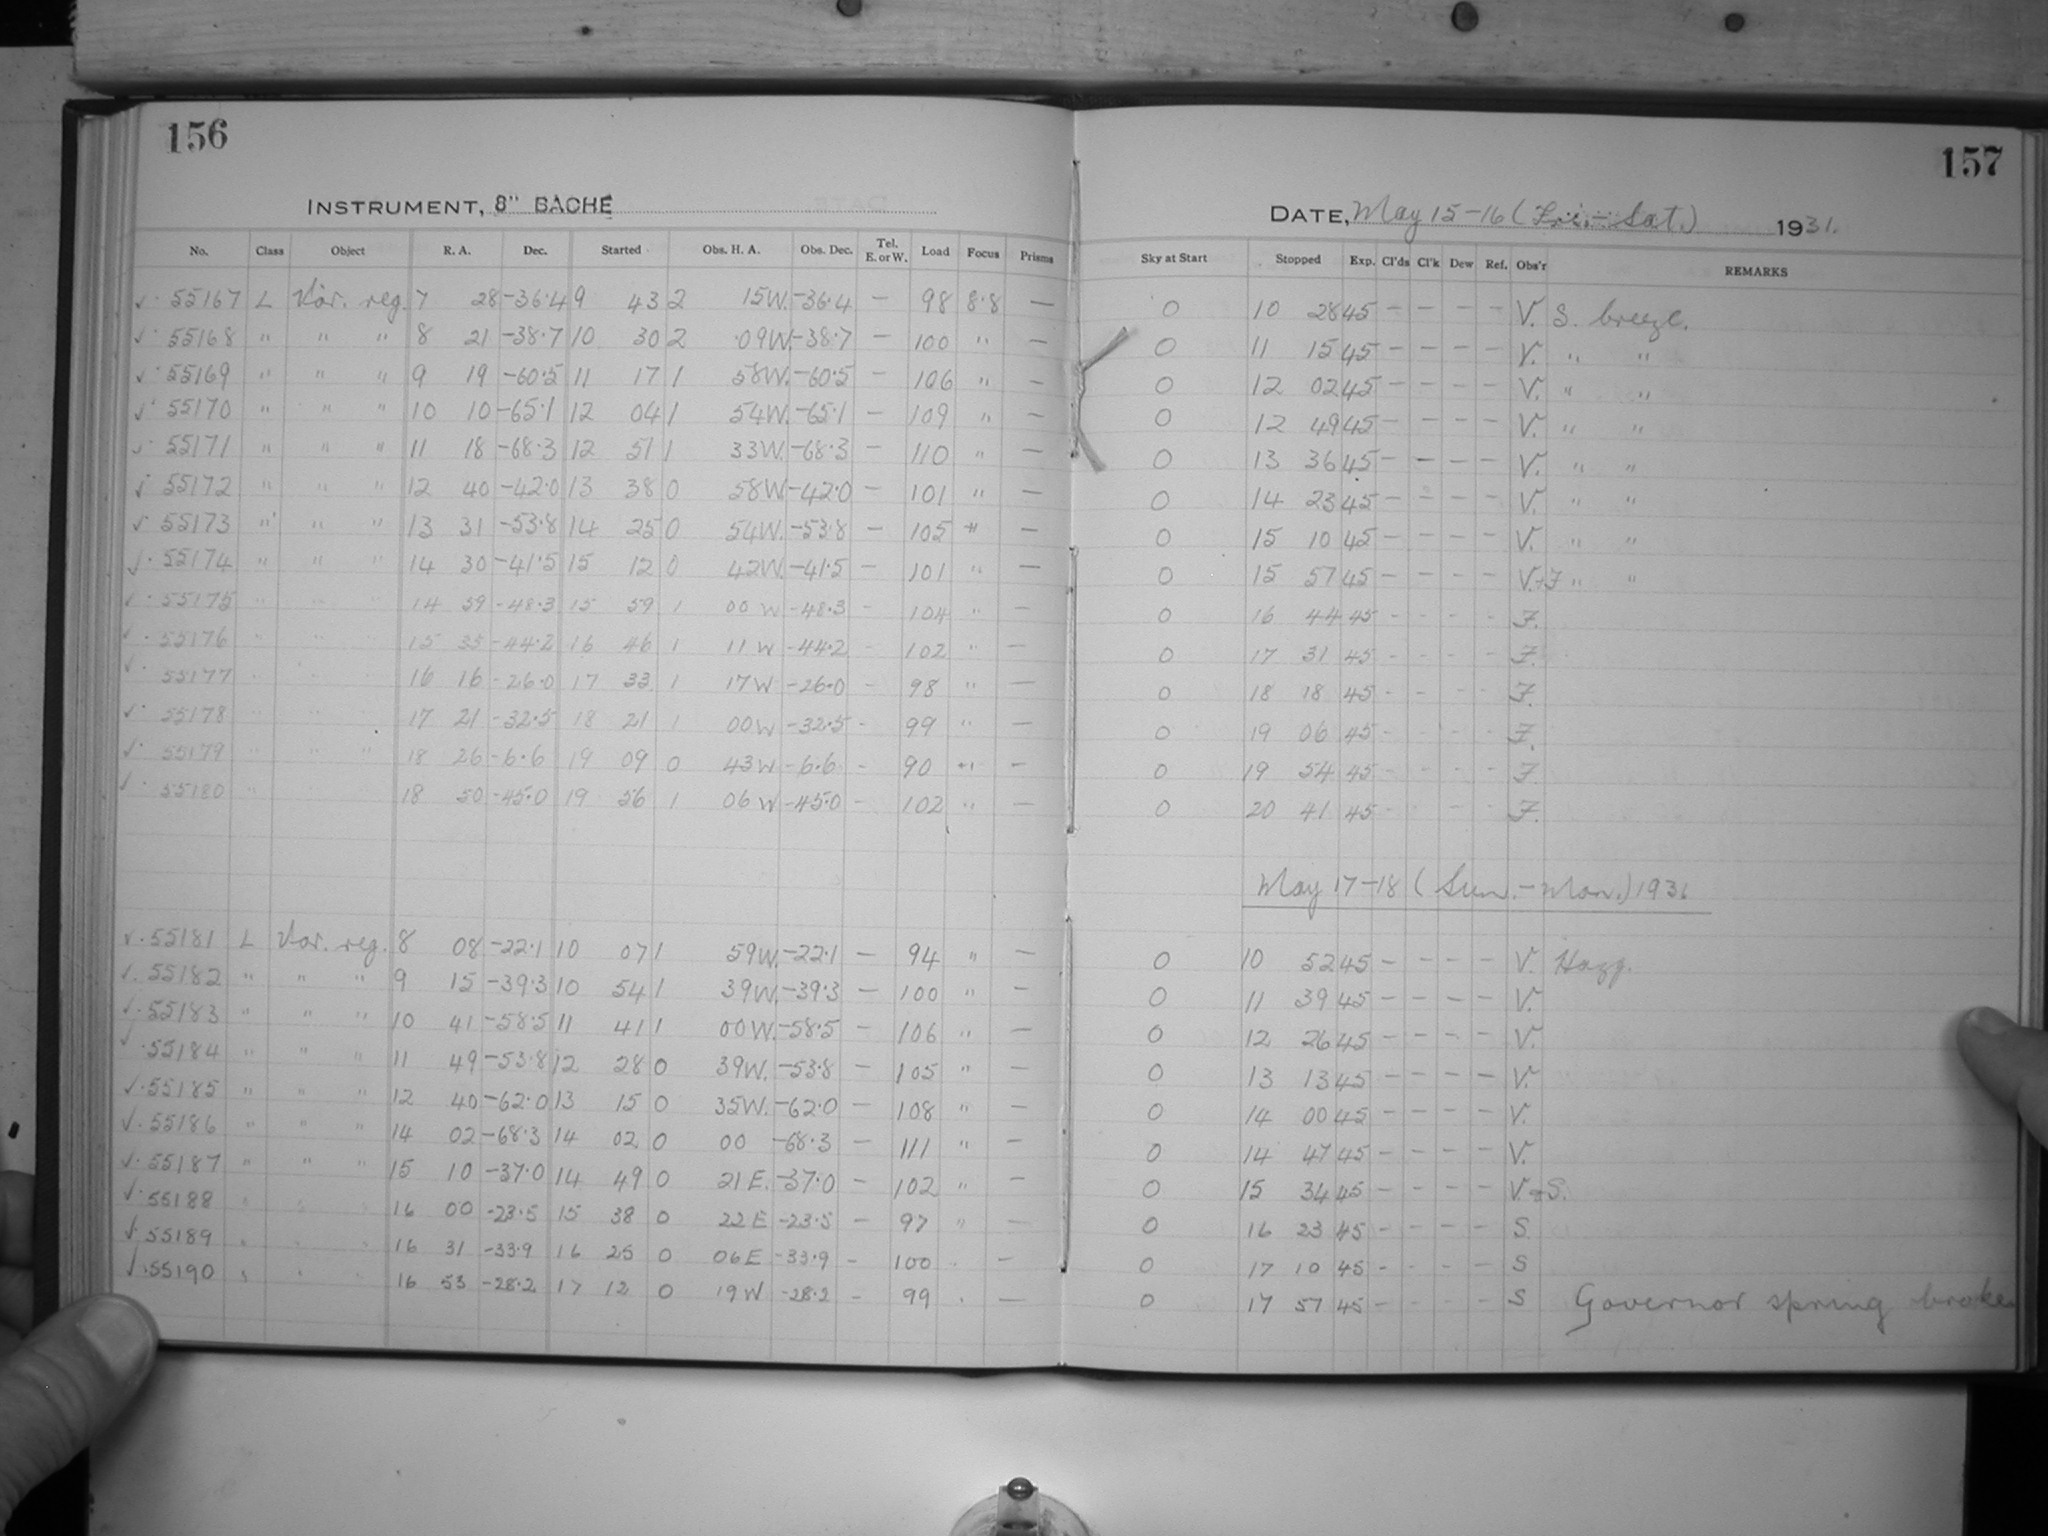 156
INSTRUMENT, 8" BACHE
No. Class Object R. A. Dec. Started Obs. H. A. Obs. Dec. Tel. E. or W. Load Focus Prisms
✓· 55167 L Var. reg. 7 28 -36.4 9 43 2 15W. -36.4 — 98 8.8 —
✓· 55168 " " " 8 21 -38.7 10 30 2 09W. -38.7 — 100 " —
✓· 55169 " " " 9 19 -60.5 11 17 1 58W. -60.5 — 106 " —
✓· 55170 " " " 10 10 -65.1 12 04 1 54W. -65.1 — 109 " —
✓· 55171 " " " 11 18 -68.3 12 51 1 33W. -68.3 — 110 " —
✓· 55172 " " " 12 40 -42.0 13 38 0 58W. -42.0 — 101 " —
✓· 55173 " " " 13 31 -53.8 14 25 0 54W. -53.8 — 105 " —
✓· 55174 " " " 14 30 -41.5 15 12 0 42W. -41.5 — 101 " —
✓· 55175 " " " 14 59 -48.3 15 59 1 00 W -48.3 - 104 " —
✓· 55176 " " " 15 35 -44.2 16 46 1 11 W -44.2 - 102 " —
✓· 55177 " " " 16 16 -26.0 17 33 1 17 W -26.0 - 98 " —
✓· 55178 " " " 17 21 -32.5 18 21 1 00 W -32.5 - 99 " —
✓· 55179 " " " 18 26 -6.6 19 09 0 43 W -6.6 - 90 " —
✓· 55180 " 18 50 -45.0 19 56 1 06 W -45.0 - 102 " —
✓· 55181 L Var. reg. 8 08 -22.1 10 07 1 59W. -22.1 — 94 " —
✓· 55182 " " " 9 15 -39.3 10 54 1 39W. -39.3 — 100 " —
✓· 55183 " " " 10 41 -58.5 11 41 1 00W. -58.5 — 106 " —
✓· 55184 " " " 11 49 -53.8 12 28 0 39W. -53.8 — 105 " —
✓· 55185 " " " 12 40 -62.0 13 15 0 35W. -62.0 — 108 " —
✓· 55186 " " " 14 02 -68.3 14 02 0 00 -68.3 — 111 " —
✓· 55187 " " " 15 10 -37.0 14 49 0 21 E. -37.0 — 102 " —
✓· 55188 " " " 16 00 -23.5 15 38 0 22 E -23.5 — 97 " —
✓· 55189 " " " 16 31 -33.9 16 25 0 06 E -33.9 - 100 " —
✓· 55190 " " " 16 53 -28.2 17 12 0 19 W -28.2 - 99 " —
157
DATE, May 15-16 (Fri.-Sat.) 1931.
Sky at Start Stopped Exp. Cl'ds Cl'k Dew Ref. Obs'r REMARKS
0 10 28 45 — — — — V. S. breeze.
0 11 15 45 — — — — V. " "
0 12 02 45 — — — — V. " "
0 12 49 45 — — — — V. " "
0 13 36 45 — — — — V. " "
0 14 23 45 — — — — V. " "
0 15 10 45 — — — — V. " "
0 15 57 45 — — — — V.+F " "
0 16 44 45 - - - - F.
0 17 31 45 - - - - F.
0 18 18 45 - - - - F.
0 19 06 45 - - - - F.
0 19 54 45 - - - - F.
0 20 41 45 - - - - F.
May 17-18 (Sun.-Mon.) 1931
0 10 52 45 — — — — V. Hazy.
0 11 39 45 — — — — V.
0 12 26 45 — — — — V.
0 13 13 45 — — — — V.
0 14 00 45 — — — — V.
0 14 47 45 — — — — V.
0 15 34 45 - - - - V.+S.
0 16 23 45 - - - - S.
0 17 10 45 - - - - S
0 17 57 45 - - - - S Governor spring broke